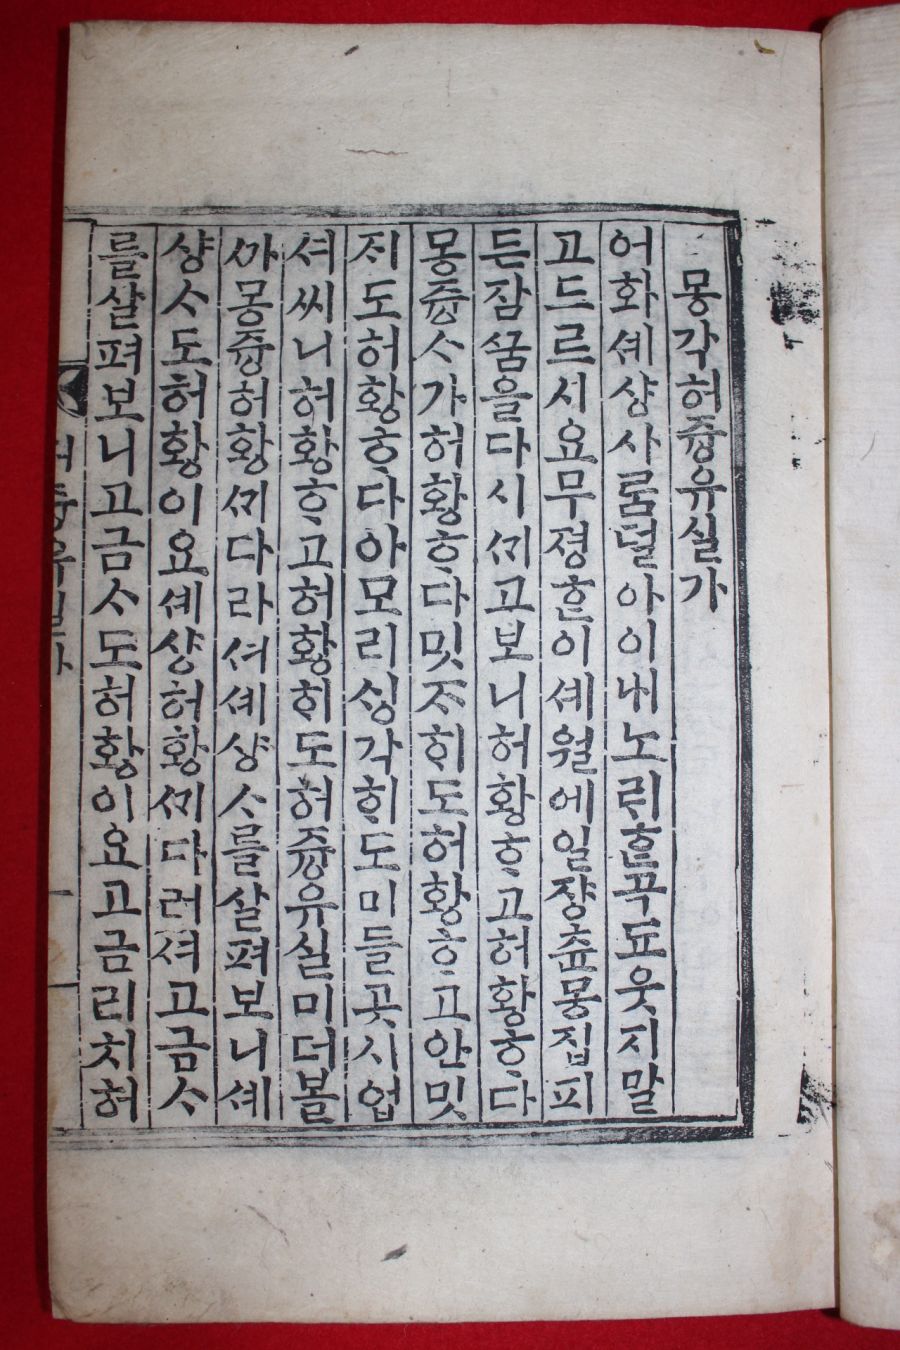 몽각허즁유실가
어화셰샹사ᄅᆞᆷ덜아이ᄂᆡ노ᄅᆡᄒᆞᆫ곡됴웃지말
고드르시요무졍ᄒᆞᆫ이셰월에일쟝츈몽집피
든잠ᄭᅮᆷ을다시ᄭᆡ고보니허황ᄒᆞ고허황ᄒᆞ다
몽즁ᄉᆞ가허황ᄒᆞ다밋ᄌᆞᄒᆡ도허황ᄒᆞ고안밋
ᄌᆡ도허황ᄒᆞ다아모리ᄉᆡᆼ각ᄒᆡ도미들곳시업
셔씨니허황ᄒᆞ고허황ᄒᆡ도허즁유실미더볼
ᄭᅡ몽즁허황ᄭᆡ다라셔셰샹ᄉᆞ를살펴보니셰
샹ᄉᆞ도허황이요셰샹허황ᄭᆡ다러셔고금ᄉᆞ
를살펴보니고금ᄉᆞ도허황이요고금리치허
허즁유실가
一